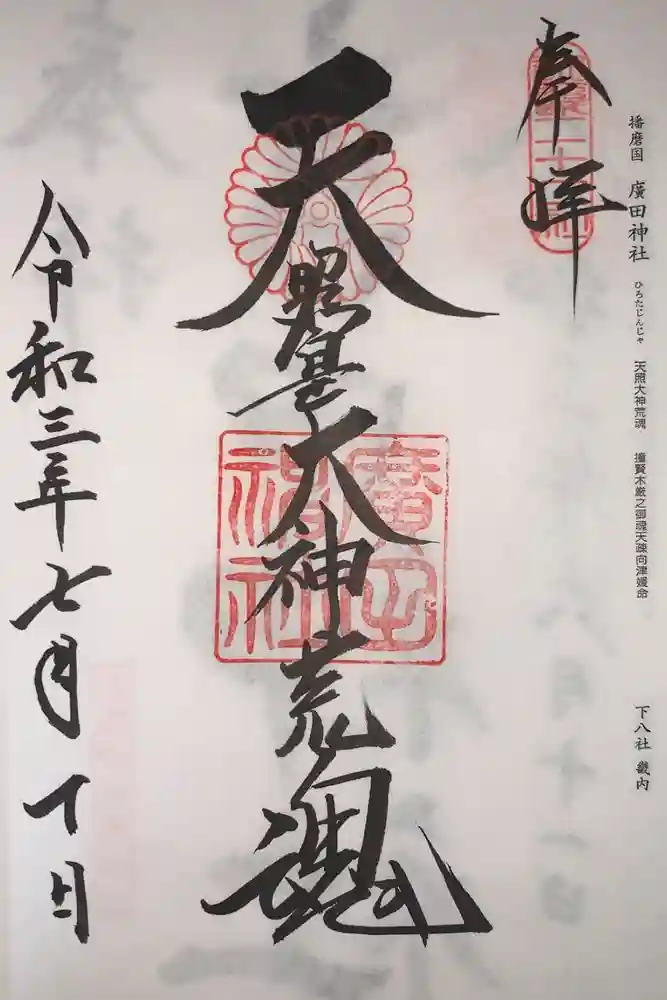 播磨国 廣田神社 ひろたじんじゃ 天照大神荒魂 撞賢木厳之御魂天疎向津媛命 下八社 畿内
奉拝
天照皇大神荒魂
廣田
神社
令和三年七月十日